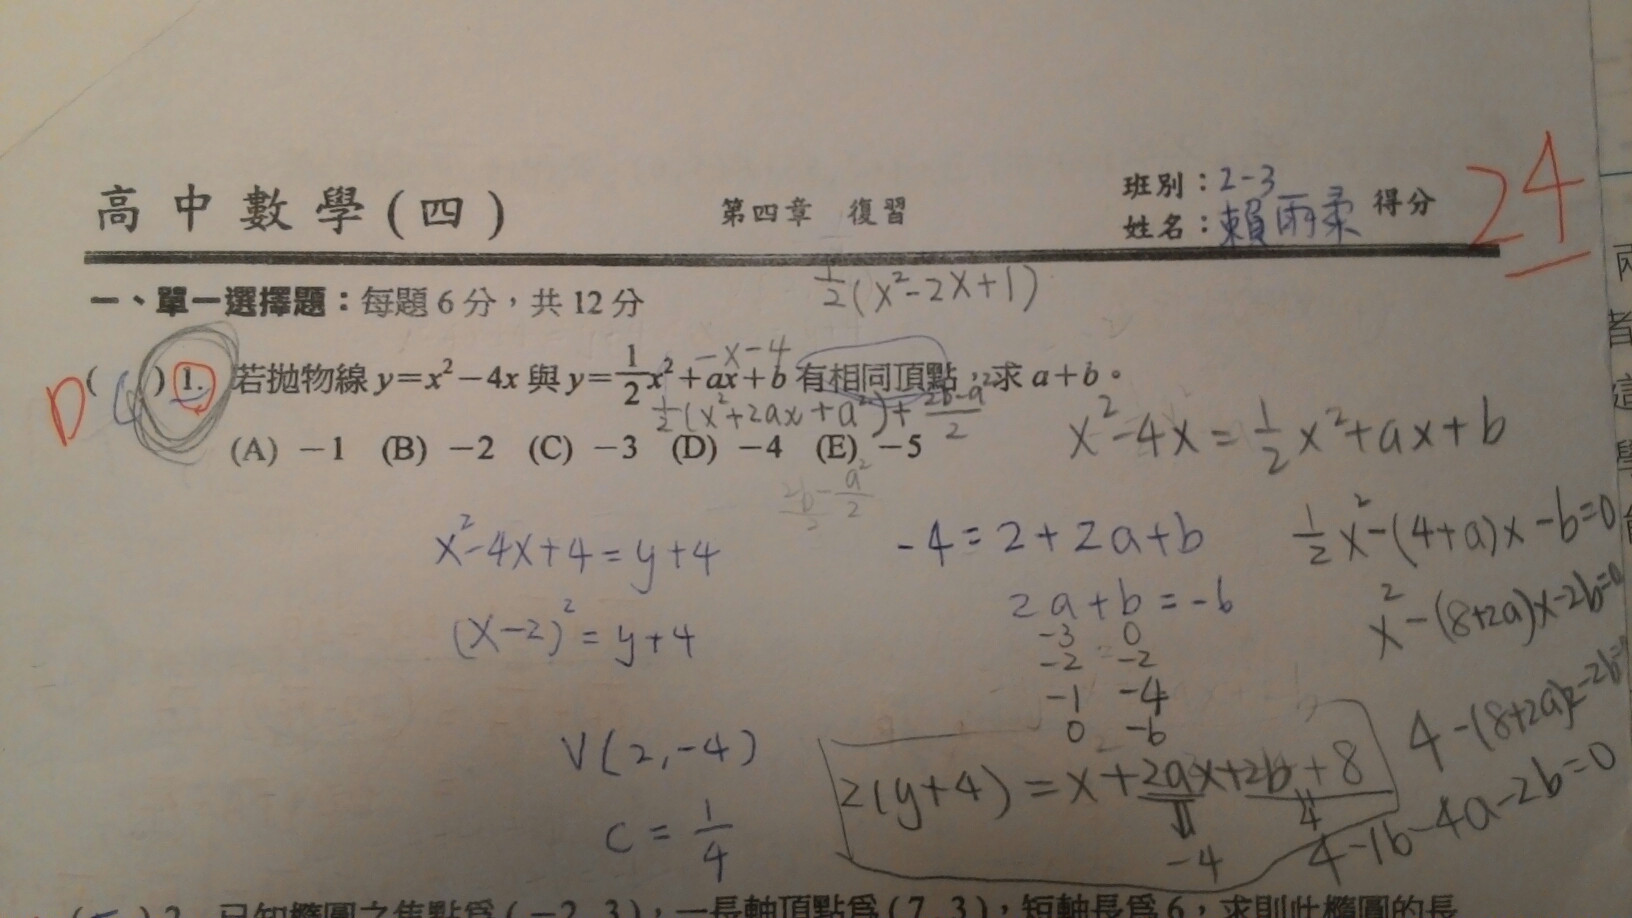 高中數學(四)
第四章 復習
班別：2-3
姓名：賴雨柔
得分
24
一、單一選擇題：每題 6 分，共 12 分
½(x²-2x+1)
-x-4
D ( ) 1. 若拋物線 y=x²-4x 與 y=½x²+ax+b 有相同頂點，求 a+b。
½(x²+2ax+a²)+(2b-a²)/2
(A) -1 (B) -2 (C) -3 (D) -4 (E) -5
2b/2-a²/2
x²-4x=½x²+ax+b
x²-4x+4=y+4
(x-2)²=y+4
V(2,-4)
c=1/4
-4=2+2a+b
2a+b=-6
-3 0
-2 -2
-1 -4
0 -6
2(y+4)=x²+2ax+2b+8
-4
4
½x²-(4+a)x-b=0
x²-(8+2a)x-2b=0
4-(8+2a)2-2b=0
4-16-4a-2b=0
)2. 已知橢圓之焦點為(-2,3)，一長軸頂點為(7,3)，短軸長為6，求則此橢圓的長
兩
者
這
學